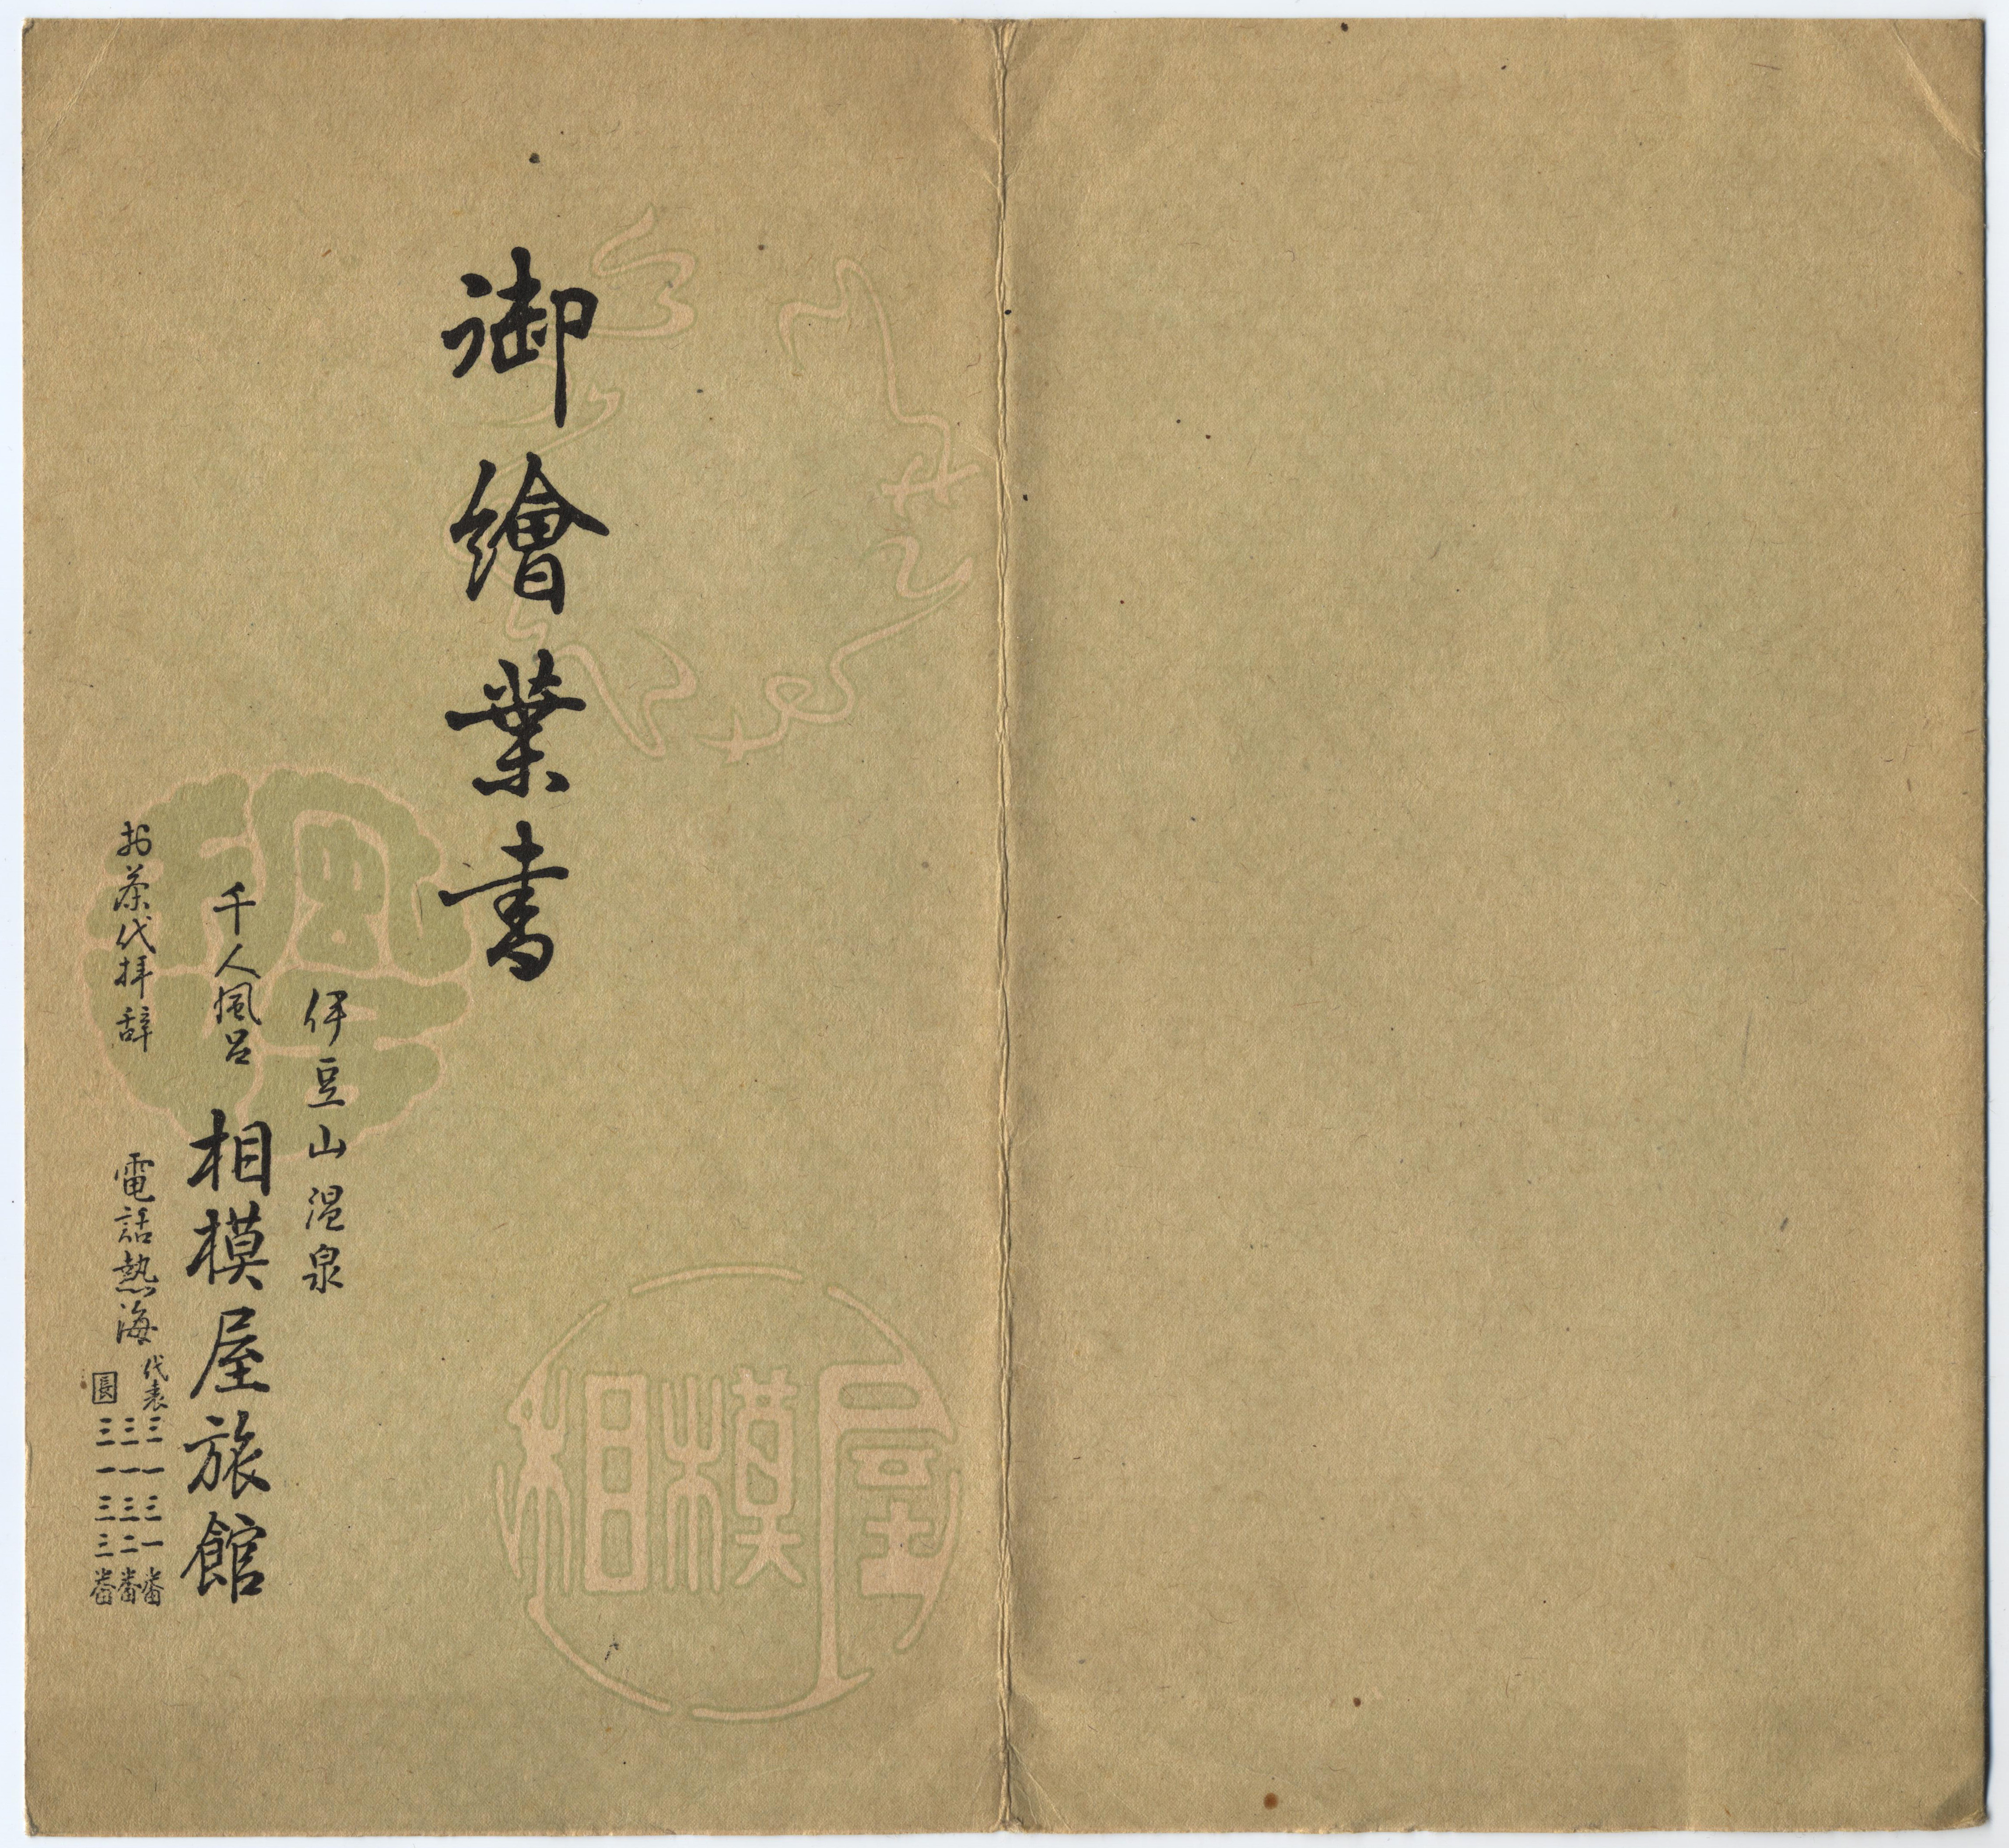 御繪葉書
伊豆山温泉
千人風呂 相模屋旅館
お茶代拝辞
電話熱海
代表三一三一番
三一三二番
長三一三三番
相模屋